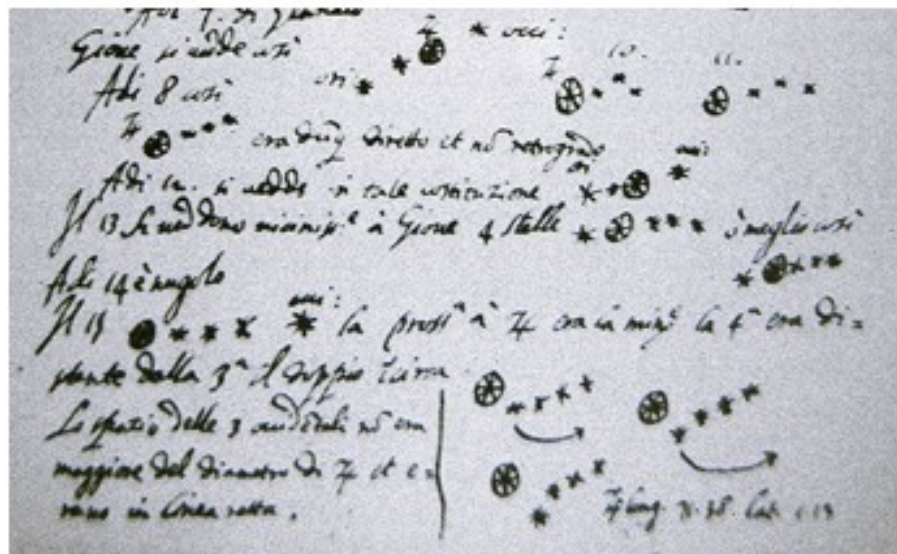 Adi 7. di Gennaio
Gione si vedde così
♃ occi:
Adi 8 così ori
♃ 10. 11.
♃ era dũq diretto et nõ retrogrado
Adi 12. si vedde in tale costituzione ori occi:
Il 13 si veddono à Gione 4 stelle ò meglio così
Adi 14 è nugolo
Il 15 occi: la prossª à ♃ era la la 4ª era di=
stante dalla 3ª il doppio circa
Lo spatio delle 3 nõ era
maggiore del diametro di ♃ et e=
rano in linea retta.
♃ long. 71.38. Lat. 1.13